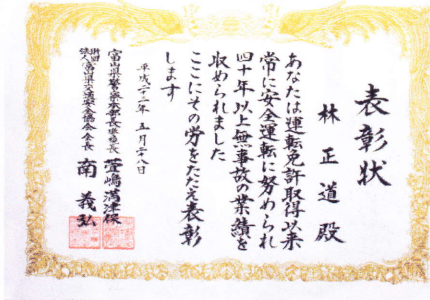 表彰状
林正道殿
あなたは運転免許取得以来
常に安全運転に努められ
四十年以上無事故の業績を
収められました
ここにその労をたたえ表彰
します
平成二十二年五月二十八日
富山県警察本部長警視長 萱嶋満津保
財団法人富山県交通安全協会会長 南義弘